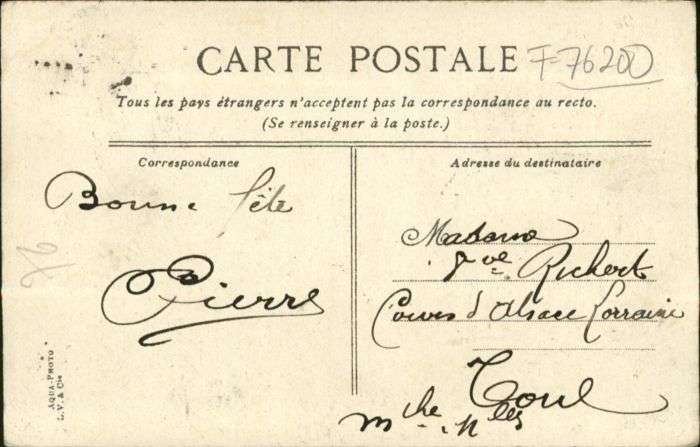 CARTE POSTALE
F-76200
Tous les pays étrangers n'acceptent pas la correspondance au recto.
(Se renseigner à la poste.)
Correspondance
Adresse du destinataire
Bonne fête
Pierre
Madame
Vve Richert
Cours d'Alsace Lorraine
Toul
Mthe Mlle
76
AQUA-PHOTO
L.V. & Cie